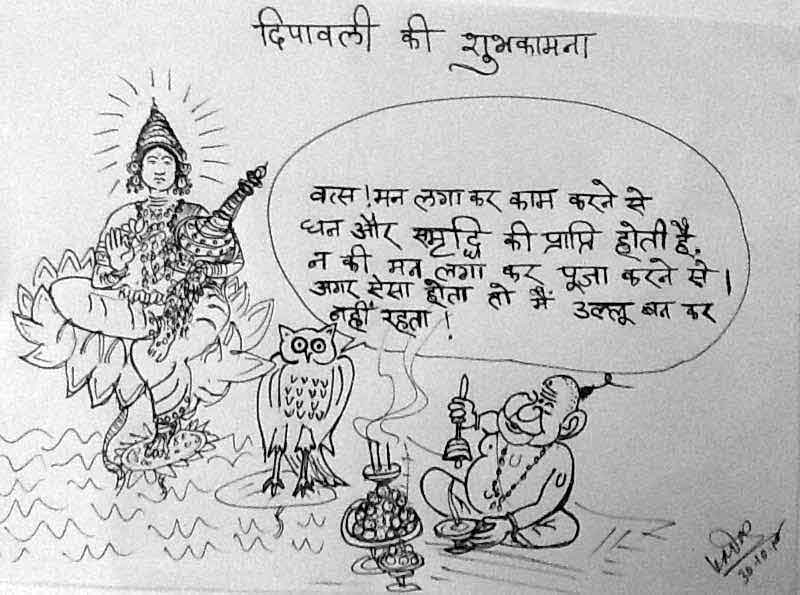 दिपावली की शुभकामना
वत्स! मन लगा कर काम करने से
धन और समृद्धि की प्राप्ति होती है,
न की मन लगा कर पूजा करने से।
अगर ऐसा होता तो मैं उल्लू बन कर
नहीं रहता!